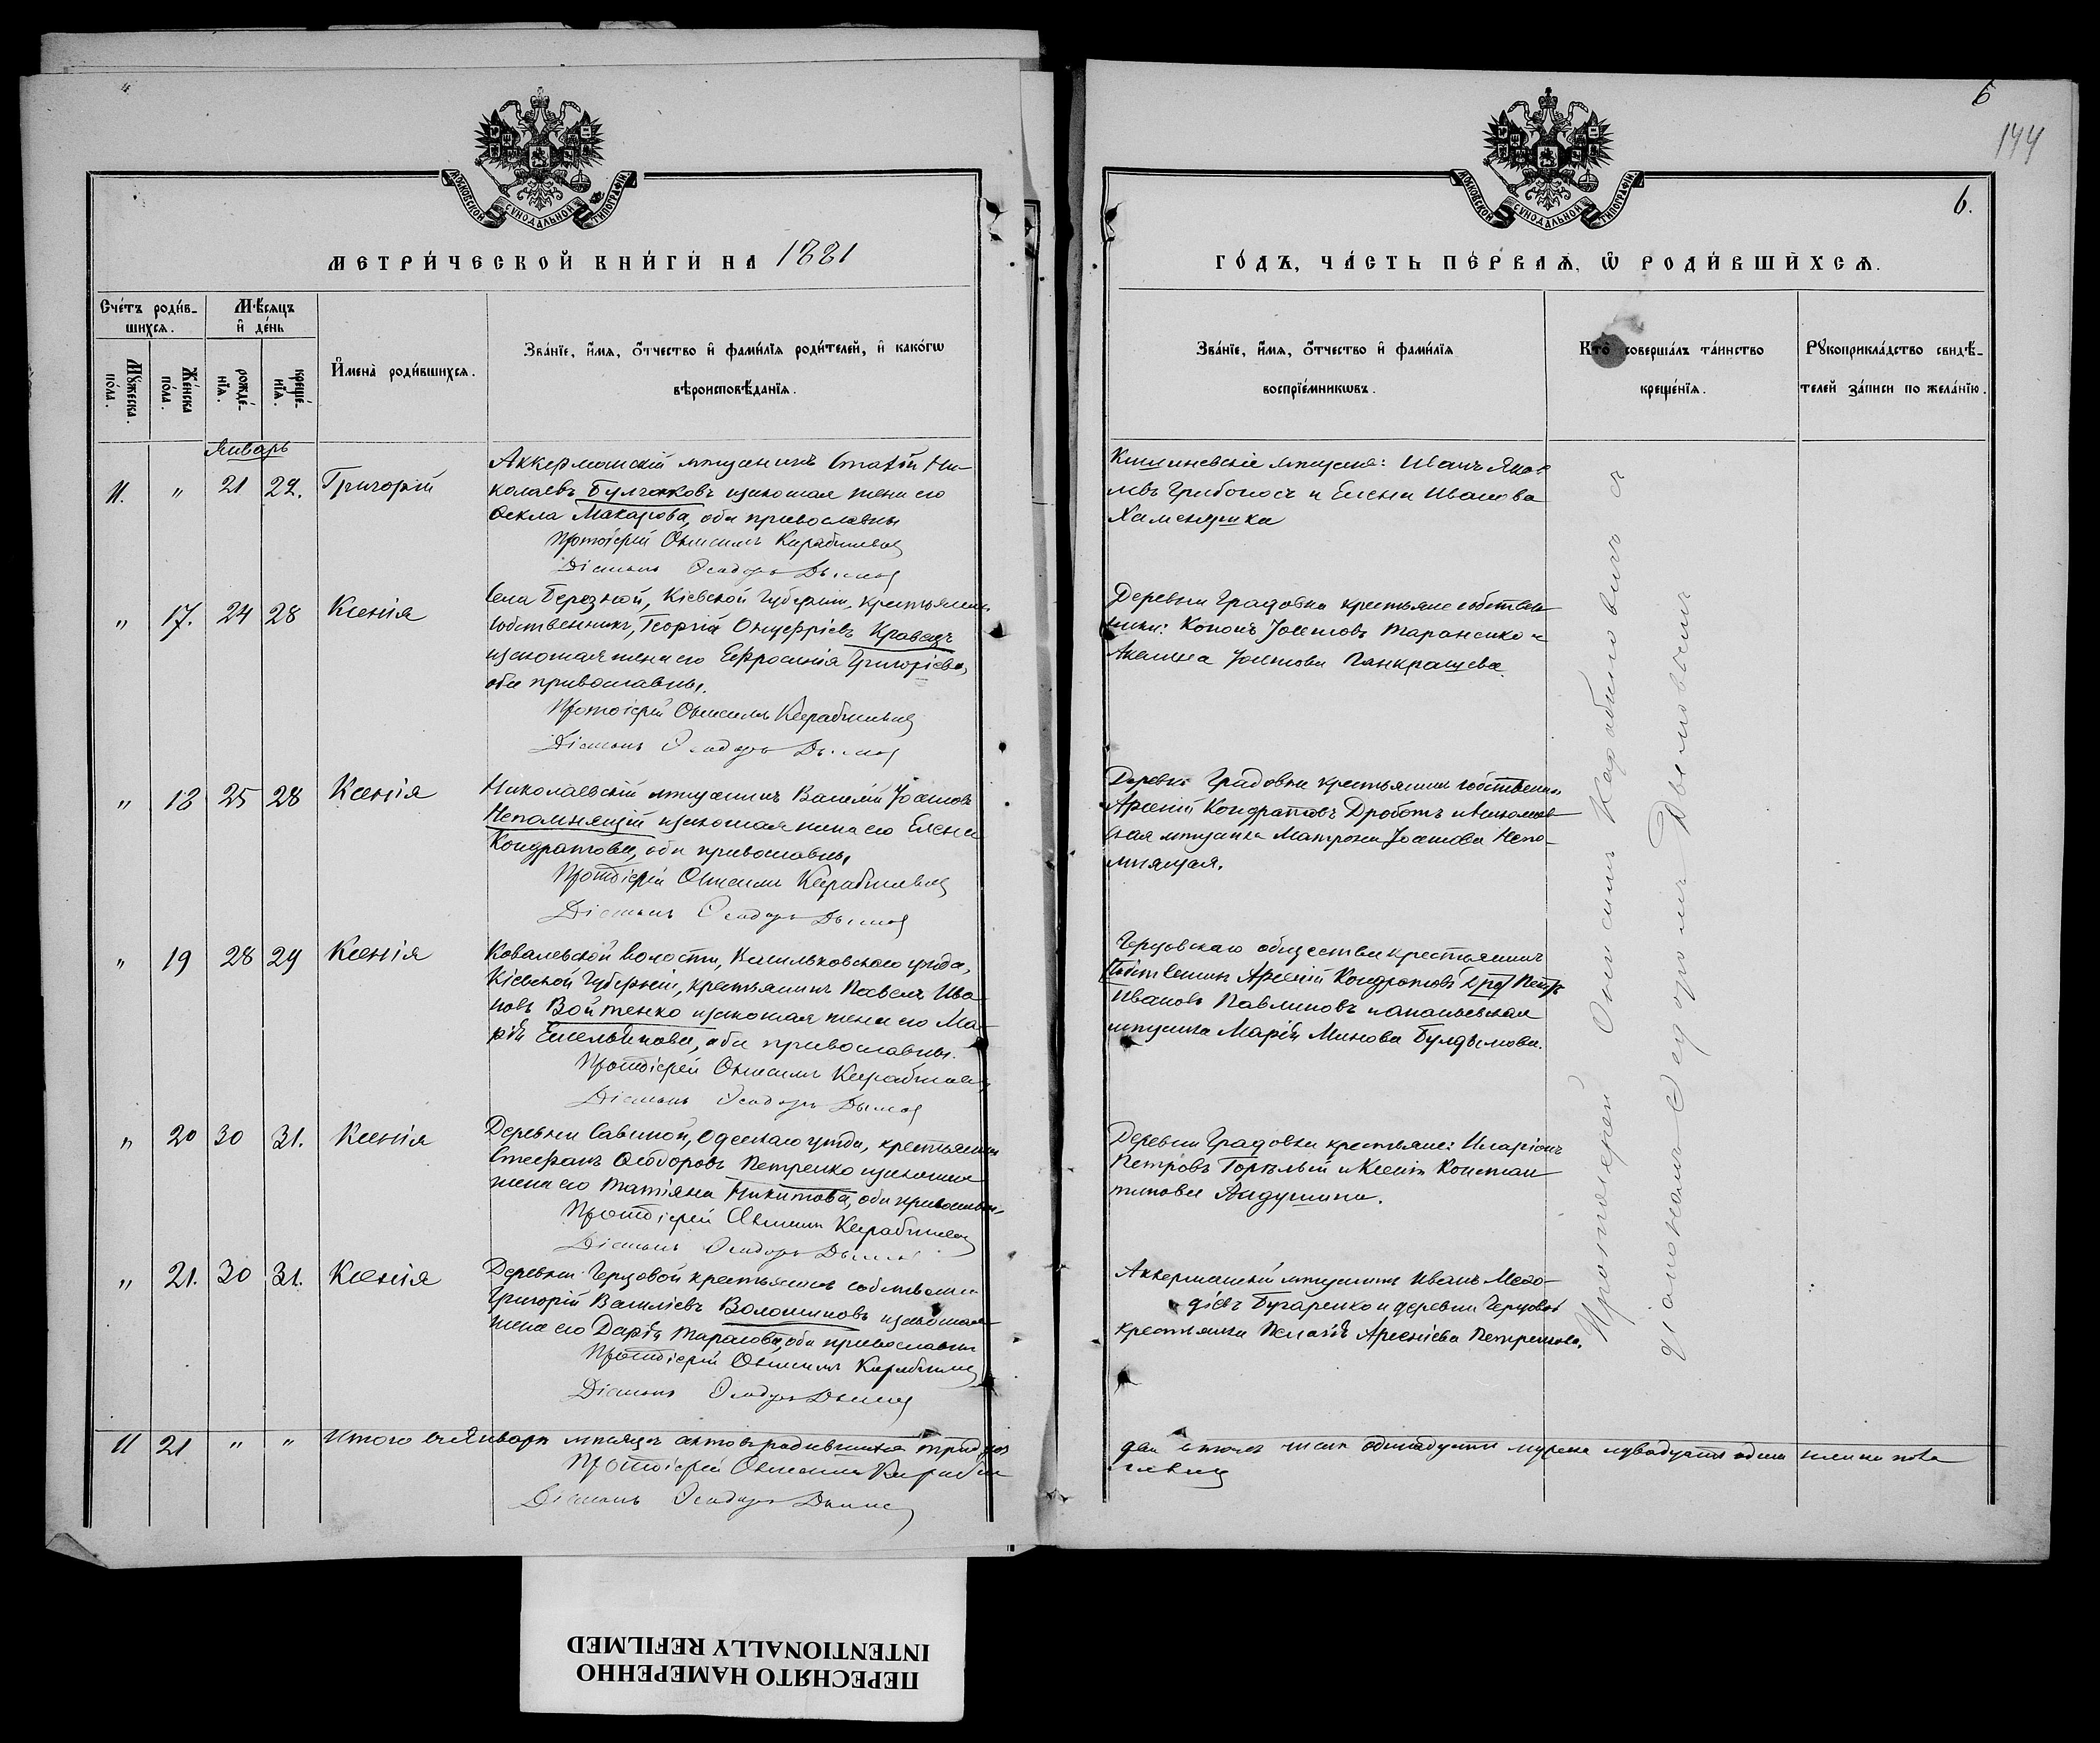 5
144
6.
МОСКОВСКОЙ СѴНОДАЛЬНОЙ ТИПОГРАФІИ
МЕТРИ́ЧЕСКОЙ КНИ́ГИ НА 1881
Сче́тъ роди́в-
шихсѧ.
Мѣ́сѧцъ
и҆ де́нь
Мꙋ́жеска по́ла.
Же́нска по́ла.
рожде́-
нїѧ.
креще́-
нїѧ.
И҆мена̀ роди́вшихсѧ.
Зва́нїе, и҆́мѧ, о҆́тчество и҆ фами́лїѧ роди́телей, и҆ како́гѡ
вѣроисповѣ́данїѧ.
Январь
11. " 21 22. Григорій
Аккерманскій мѣщанинъ Ни-
колаевъ Булгаковъ и законная жена его
Ѳекла Макарова, оба православны
Протоіерей Онисимъ
Діаконъ Ѳеодоръ Дымов
" 17. 24 28 Ксенія
Села Березной, Кіевской Губерніи, крестьянинъ
собственникъ, Георгій Онуфріевъ Кравецъ
и законная жена его Евфросинія Григоріева,
оба православны.
Протоіерей Онисимъ
Діаконъ Ѳеодоръ Дымов
" 18 25 28 Ксенія
Николаевскій мѣщанинъ Василій
Непомнящій и законная жена его Елена
Кондратова, оба православны
Протоіерей Онисимъ
Діаконъ Ѳеодоръ Дымов
" 19 28 29 Ксенія
Ковалевской волости, Васильковскаго уѣзда,
Кіевской Губерніи, крестьянинъ Павелъ Ива-
новъ Войтенко и законная жена его Ма-
рія Емельянова, оба православны.
Протоіерей Онисимъ
Діаконъ Ѳеодоръ Дымов
" 20 30 31. Ксенія
Деревни Савиной, Одесскаго уѣзда, крестьянинъ
Стефанъ Ѳеодоровъ Петренко и законная
жена его Татіяна Никитова, оба православны
Протоіерей Онисимъ
Діаконъ Ѳеодоръ
" 21. 30 31. Ксенія
Деревни крестьянинъ собственникъ
Григорій Василіевъ Волошиновъ и законная
жена его Дарія Тарасова, оба православны
Протоіерей Онисимъ
Діаконъ Ѳеодоръ Дымов
11 21 " " Итого въ Январѣ мѣсяцѣ родившихся тридцать
Протоіерей Онисимъ
Діаконъ Ѳеодоръ
МОСКОВСКОЙ СѴНОДАЛЬНОЙ ТИПОГРАФІИ
ГО́ДЪ, ЧА́СТЬ ПЕ́РВАѦ, Ѡ҆ РОДИ́ВШИХСѦ.
Зва́нїе, и҆́мѧ, о҆́тчество и҆ фами́лїѧ
воспрїе́мникѡвъ.
Кто̀ соверша́лъ та́инство
креще́нїѧ.
Рꙋкоприкла́дство свидѣ́-
телей за́писи по жела́нїю.
Кишиневскіе мѣщане: Иванъ Яков-
левъ Грибоносъ и Елена Иванова
Деревни Градовки крестьяне собствен-
ники: Кононъ Тараненко и
Акилина Панкращева.
Деревни Градовки крестьянинъ собственникъ
Арсеній Кондратовъ Дроботъ и Николаев-
ская мѣщанка Матрона Непо-
мнящая.
общества крестьянинъ
собственникъ Арсеній Кондратовъ Петръ
Ивановъ Павлиновъ и ананьевская
мѣщанка Марія Минова Булдымова.
Деревни Градовки крестьяне: Иларіонъ
Петровъ Горѣлый и Ксенія Констан-
тинова
Аккерманскій мѣщанинъ Иванъ Меѳо-
діевъ Бугаренко и деревни
крестьянка Пелагія Арсеніева
Протоіерей Онисимъ
діакономъ Ѳедоромъ Дымовымъ
два въ томъ числѣ одинадцать мужска и двадцать одинъ женска пола
ПЕРЕСНЯТО НАМЕРЕННО
INTENTIONALLY REFILMED